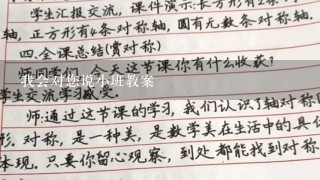 学生汇报交流,课件演示:长方形有2条
轴,正方形有4条对称轴,圆有无数条对称轴.
四.全课总结(赏对称)
师:同学们,今天这节课你有什么收获?
我会对您说小班教案
学生交流学习感受.
师:通过这节课的学习,我们认识了轴对称图
形.对称,是一种美,是数学美在生活中的具体
体现.只要你留心观察,到处都能找到对称